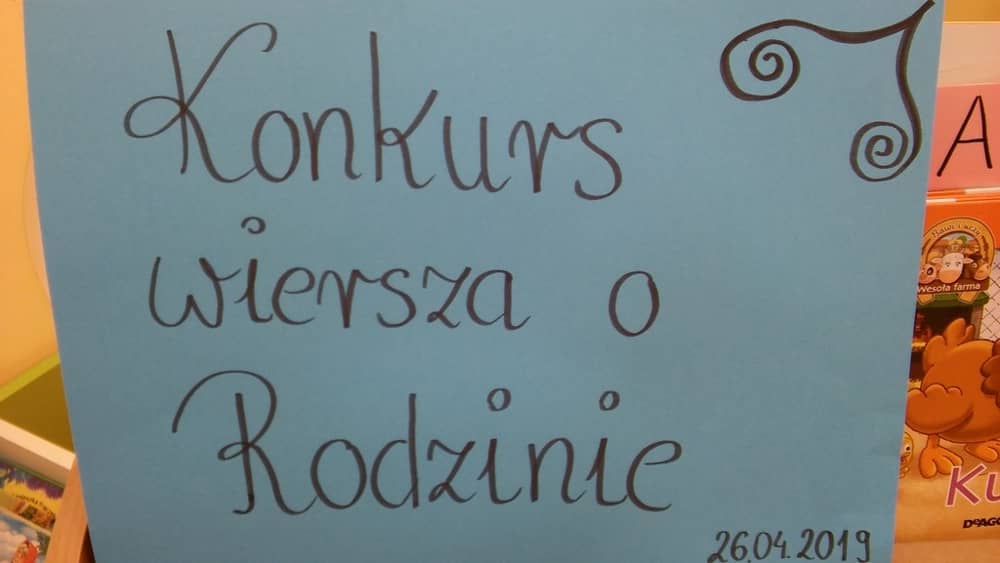 Konkurs
wiersza o
Rodzinie
26.04.2019
A
Wesoła farma
Ku